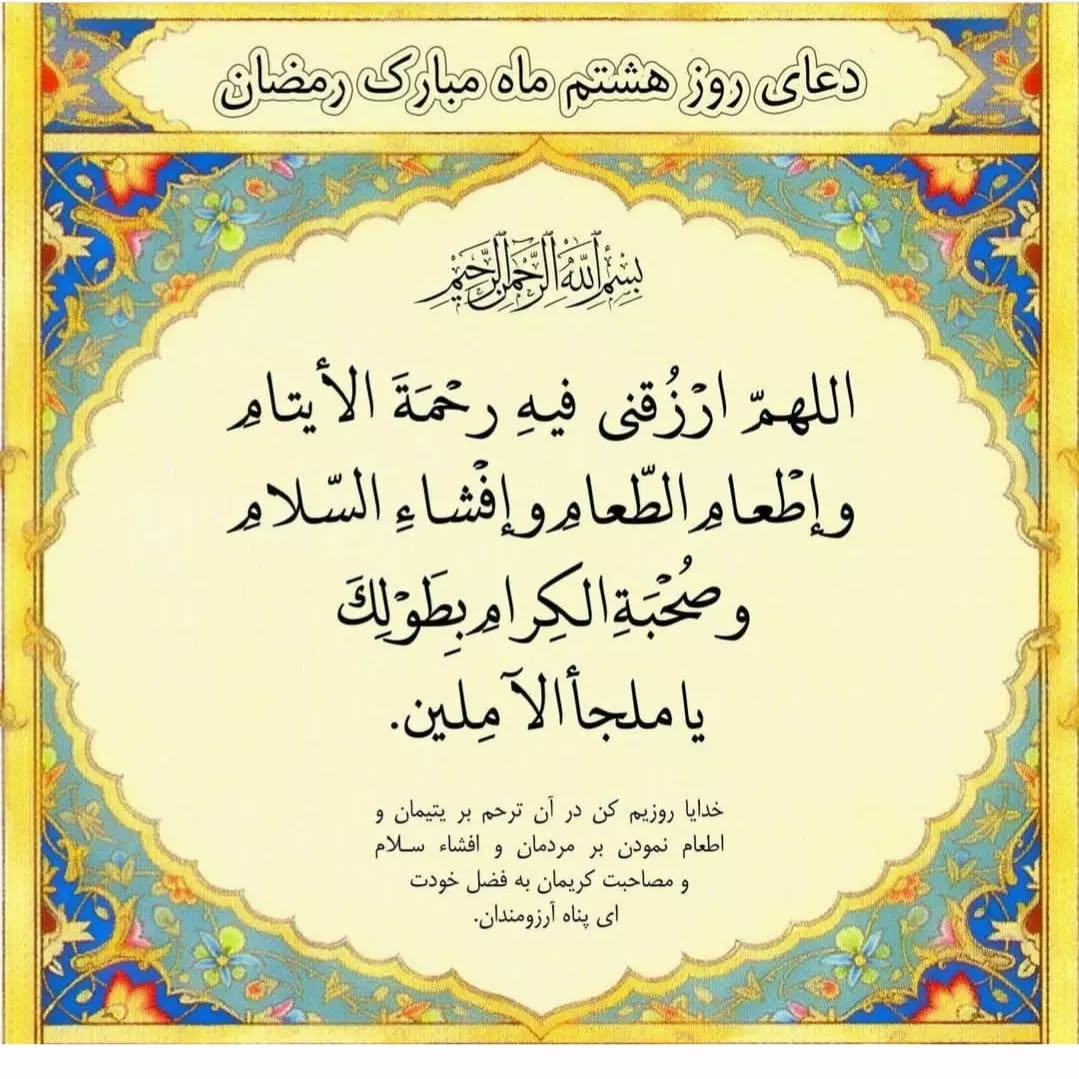 دعای روز هشتم ماه مبارک رمضان
بِسْمِ ٱللَّهِ ٱلرَّحْمَٰنِ ٱلرَّحِيمِ
اللهمّ ارْزُقنی فیهِ رحْمَةَ الأیتامِ
وإطْعامِ الطّعامِ وإفْشاءِ السّلامِ
وصُحْبَةِ الکِرامِ بِطَوْلِكَ
یا ملجأ الآمِلین.
خدایا روزیم کن در آن ترحم بر یتیمان و
اطعام نمودن بر مردمان و افشاء سـلام
و مصاحبت کریمان به فضل خودت
ای پناه آرزومندان.